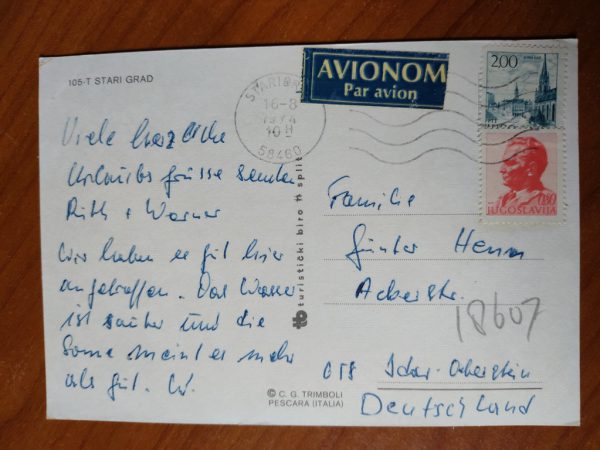 105-T STARI GRAD
AVIONOM
Par avion
2,00
STARI GR
16-8
1974
10 H
58460
0.80
JUGOSLAVIJA
Viele herzliche
Urlaubsgrüsse senden
Ruth + Werner
Wir haben es gut hier
angetroffen. Das Wasser
ist sauber und die
Sonne meint es mehr
als gut.
tb turistički biro split
Familie
Günter
Ackerstr.
18607
Idar-Oberstein
Deutschland
© C. G. TRIMBOLI
PESCARA (ITALIA)